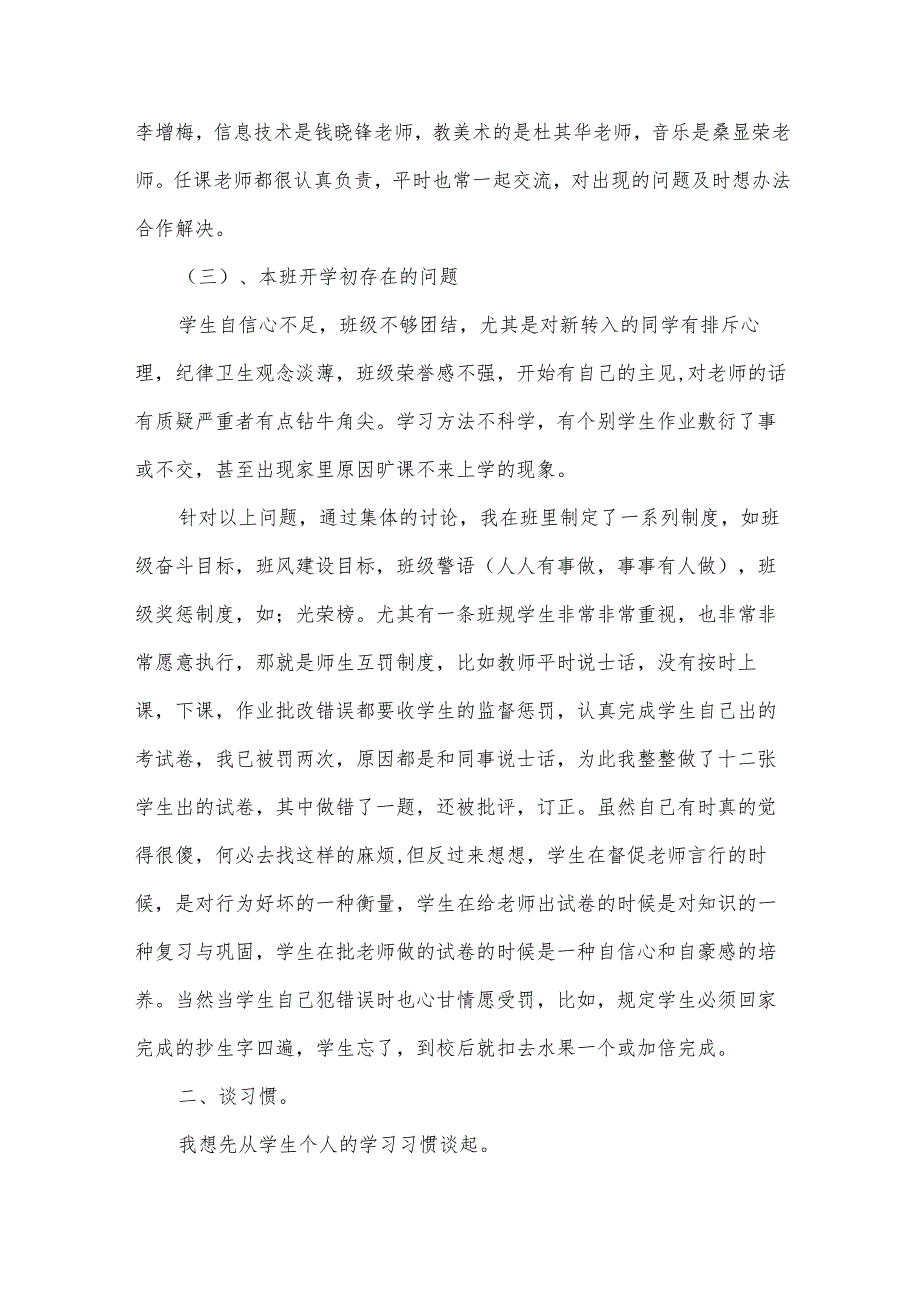 李增梅，信息技术是钱晓锋老师，教美术的是杜其华老师，音乐是桑显荣老
师。任课老师都很认真负责，平时也常一起交流，对出现的问题及时想办法
合作解决。
（三）、本班开学初存在的问题
学生自信心不足，班级不够团结，尤其是对新转入的同学有排斥心
理，纪律卫生观念淡薄，班级荣誉感不强，开始有自己的主见,对老师的话
有质疑严重者有点钻牛角尖。学习方法不科学，有个别学生作业敷衍了事
或不交，甚至出现家里原因旷课不来上学的现象。
针对以上问题，通过集体的讨论，我在班里制定了一系列制度，如班
级奋斗目标，班风建设目标，班级警语（人人有事做，事事有人做），班
级奖惩制度，如；光荣榜。尤其有一条班规学生非常非常重视，也非常非
常愿意执行，那就是师生互罚制度，比如教师平时说士话，没有按时上
课，下课，作业批改错误都要收学生的监督惩罚，认真完成学生自己出的
考试卷，我已被罚两次，原因都是和同事说士话，为此我整整做了十二张
学生出的试卷，其中做错了一题，还被批评，订正。虽然自己有时真的觉
得很傻，何必去找这样的麻烦,但反过来想想，学生在督促老师言行的时
候，是对行为好坏的一种衡量，学生在给老师出试卷的时候是对知识的一
种复习与巩固，学生在批老师做的试卷的时候是一种自信心和自豪感的培
养。当然当学生自己犯错误时也心甘情愿受罚，比如，规定学生必须回家
完成的抄生字四遍，学生忘了，到校后就扣去水果一个或加倍完成。
二、谈习惯。
我想先从学生个人的学习习惯谈起。